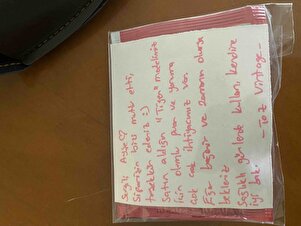 Sevgili Ayşe ♡
Siparişin bizi mutlu etti,
teşekkür ederiz :)
Satın aldığın "Tigen" modelimiz
için olumlu puan ve yoruma
çok çok ihtiyacımız var.
Eğer beğenir ve zamanın olursa
bekleriz
Sağlıklı günlerde kullan, kendine
iyi bak.
- Toz Vintage -